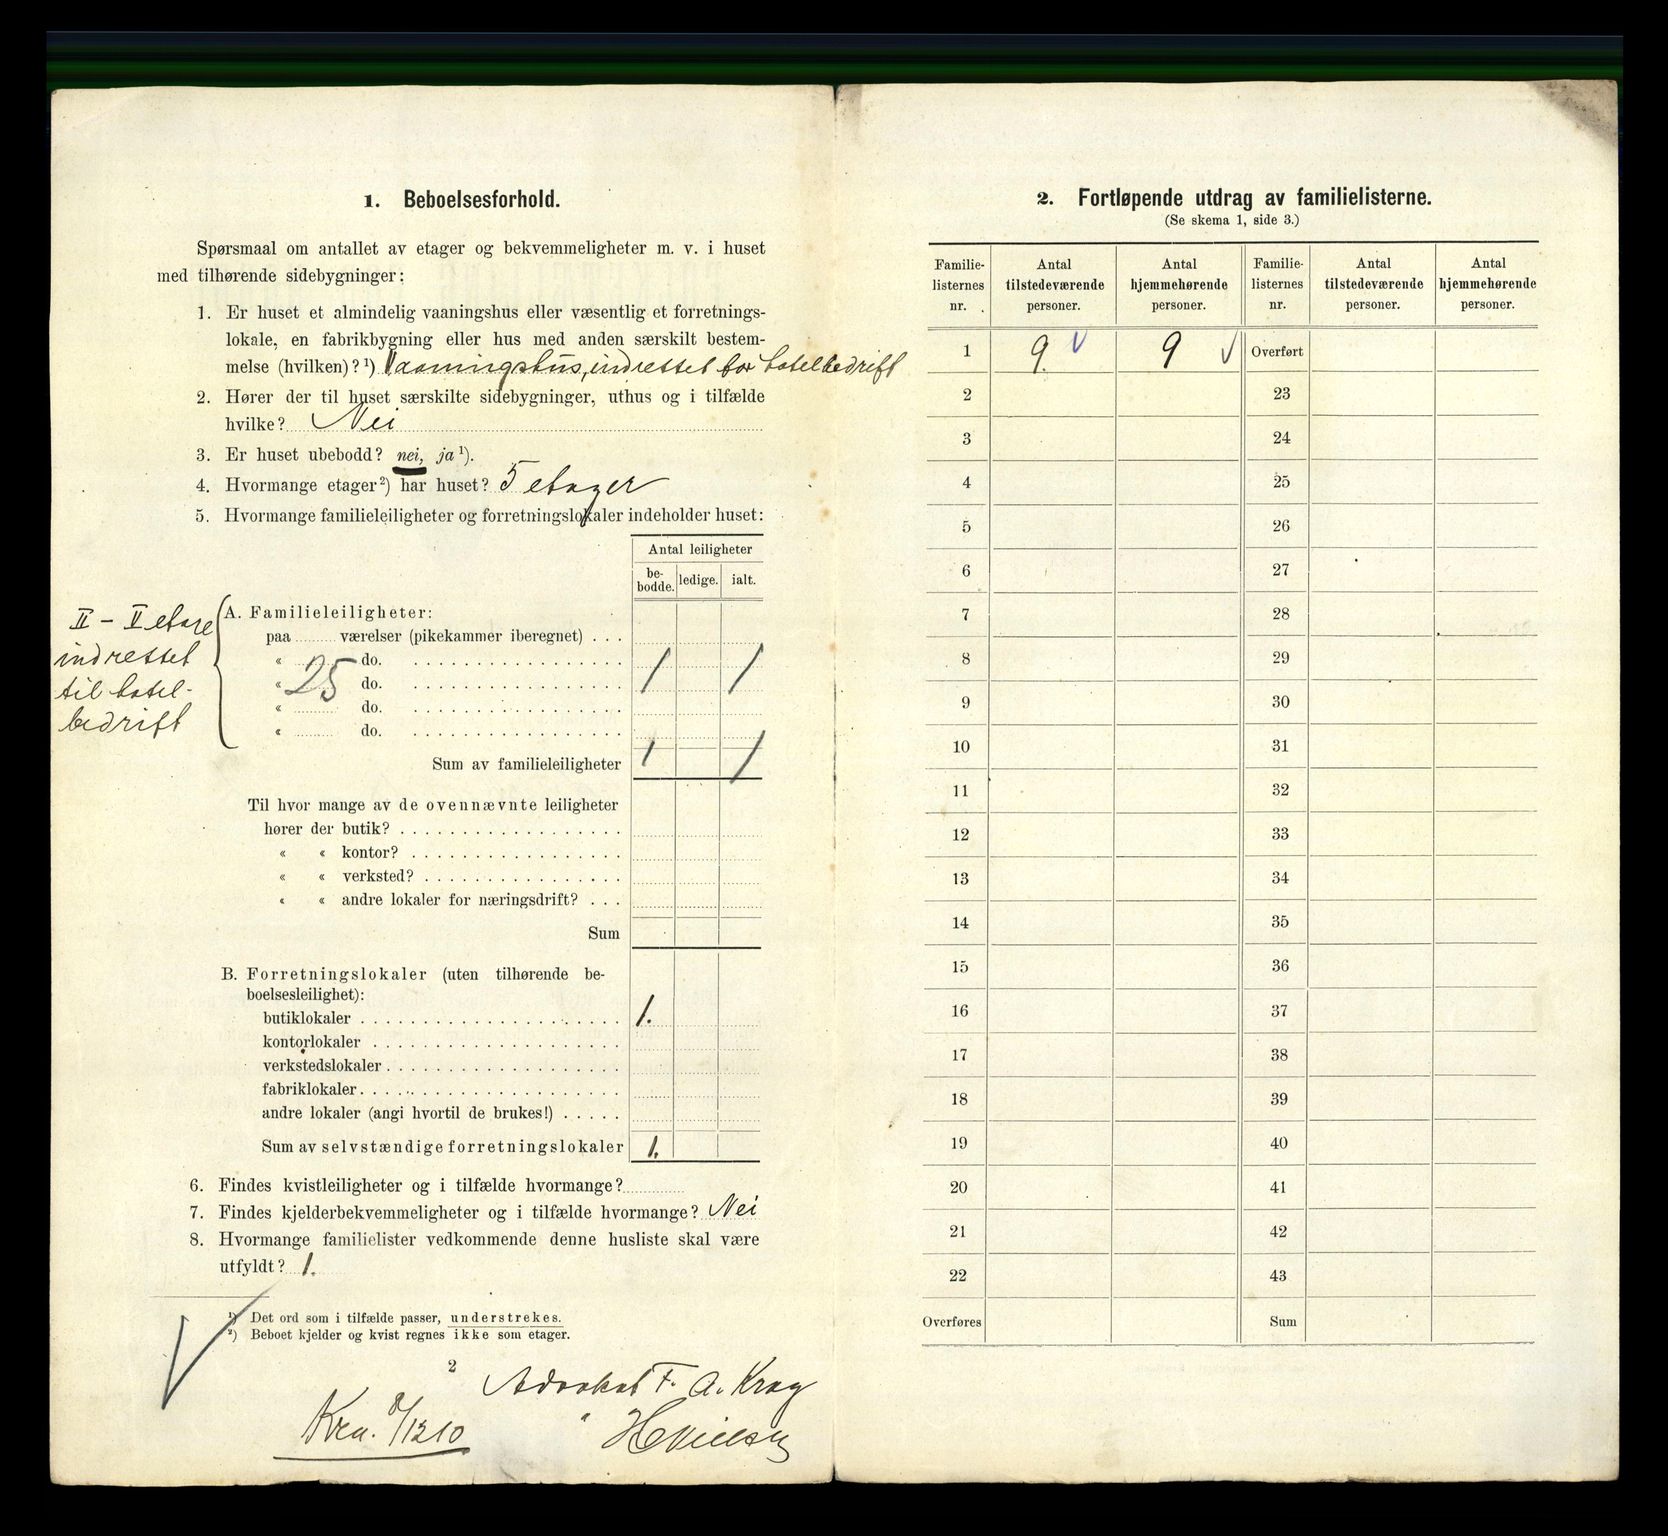 1. Beboelsesforhold.
Spørsmaal om antallet av etager og bekvemmeligheter m. v. i huset
med tilhørende sidebygninger:
1. Er huset et almindelig vaaningshus eller væsentlig et forretnings-
lokale, en fabrikbygning eller hus med anden særskilt bestem-
melse (hvilken)? ¹) Vaaningshus, indrettet for hotelbedrift
2. Hører der til huset særskilte sidebygninger, uthus og i tilfælde
hvilke? Nei
3. Er huset ubebodd? nei, ja ¹).
4. Hvormange etager ²) har huset? 5 etager
5. Hvormange familieleiligheter og forretningslokaler indeholder huset:
Antal leiligheter
be-bodde. ledige. ialt.
II - V etage
indrettet
til hotel-
bedrift
A. Familieleiligheter:
paa ........ værelser (pikekammer iberegnet) . . .
« ........ do. . . . . . . . . . . . . . . . . . .
« 25 do. . . . . . . . . . . . . . . . . . . 1 1
« ........ do. . . . . . . . . . . . . . . . . . .
« ........ do. . . . . . . . . . . . . . . . . . .
Sum av familieleiligheter 1 1
Til hvor mange av de ovennævnte leiligheter
hører der butik? . . . . . . . . . . . . . . . . .
« « kontor? . . . . . . . . . . . . . . . . .
« « verksted? . . . . . . . . . . . . . . . .
« « andre lokaler for næringsdrift? . . .
Sum
B. Forretningslokaler (uten tilhørende be-
boelsesleilighet):
butiklokaler . . . . . . . . . . . . . . . . . . . . 1.
kontorlokaler . . . . . . . . . . . . . . . . . . .
verkstedslokaler . . . . . . . . . . . . . . . . . .
fabriklokaler . . . . . . . . . . . . . . . . . . . .
andre lokaler (angi hvortil de brukes!) . . . . .
Sum av selvstændige forretningslokaler 1.
6. Findes kvistleiligheter og i tilfælde hvormange?
7. Findes kjelderbekvemmeligheter og i tilfælde hvormange? Nei
8. Hvormange familielister vedkommende denne husliste skal være
utfyldt? 1.
¹) Det ord som i tilfælde passer, understrekes.
²) Beboet kjelder og kvist regnes ikke som etager.
2
Advokat F. A. Krag
Kra. 8/12 10
2. Fortløpende utdrag av familielisterne.
(Se skema 1, side 3.)
Familie-listernes nr. Antal tilstedeværende personer. Antal hjemmehørende personer. Familie-listernes nr. Antal tilstedeværende personer. Antal hjemmehørende personer.
1 9. 9 Overført
2 23
3 24
4 25
5 26
6 27
7 28
8 29
9 30
10 31
11 32
12 33
13 34
14 35
15 36
16 37
17 38
18 39
19 40
20 41
21 42
22 43
Overføres Sum